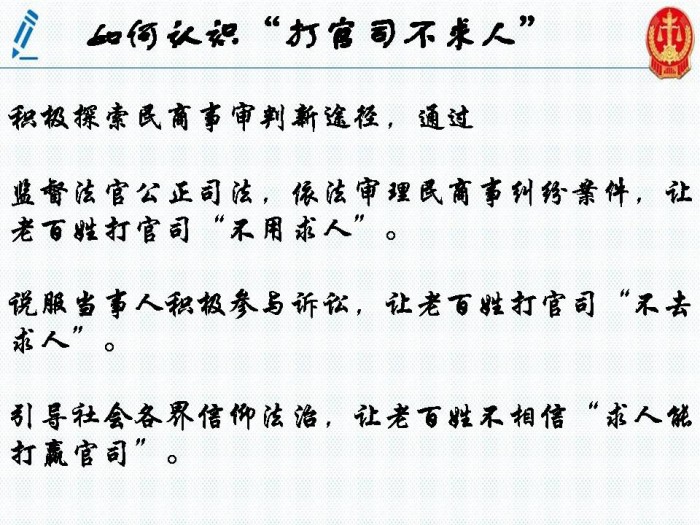 如何认识“打官司不求人”
积极探索民商事审判新途径，通过
监督法官公正司法，依法审理民商事纠纷案件，让
老百姓打官司“不用求人”。
说服当事人积极参与诉讼，让老百姓打官司“不去
求人”。
引导社会各界信仰法治，让老百姓不相信“求人能
打赢官司”。